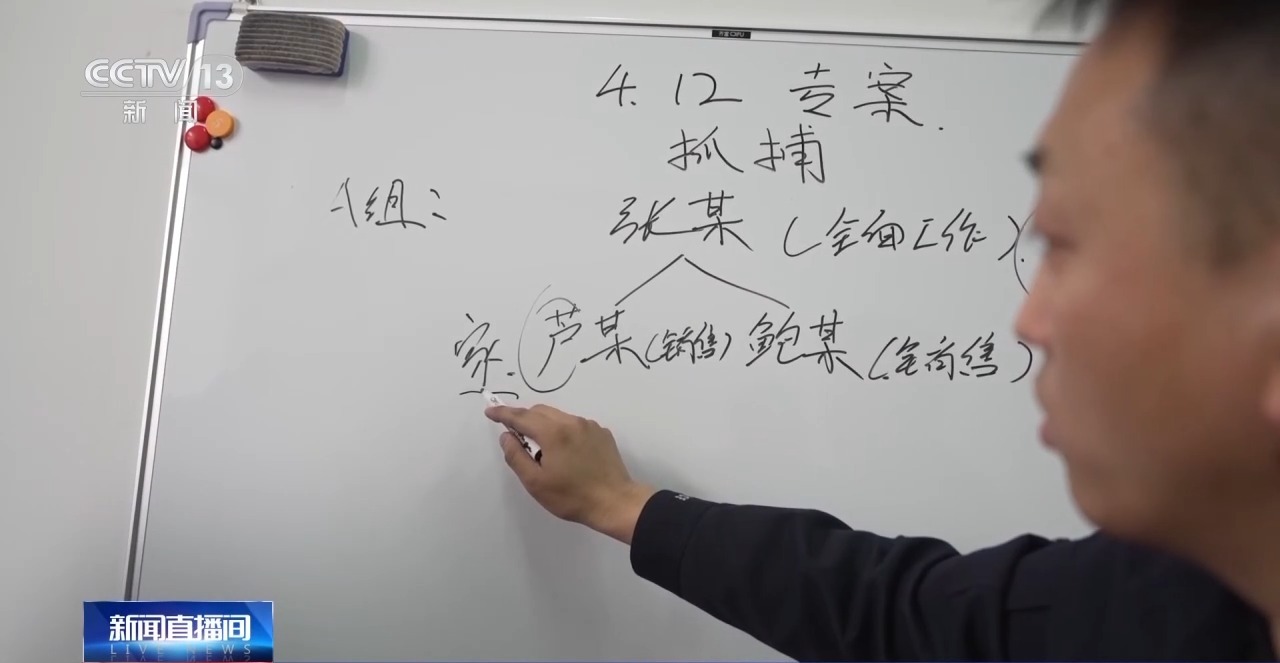 CCTV 13
新闻
4.12 专案.
抓捕
A组:
张某 (全面工作)
家. 芦某(销售) 鲍某 (销售)
新闻直播间
LIVE NEWS